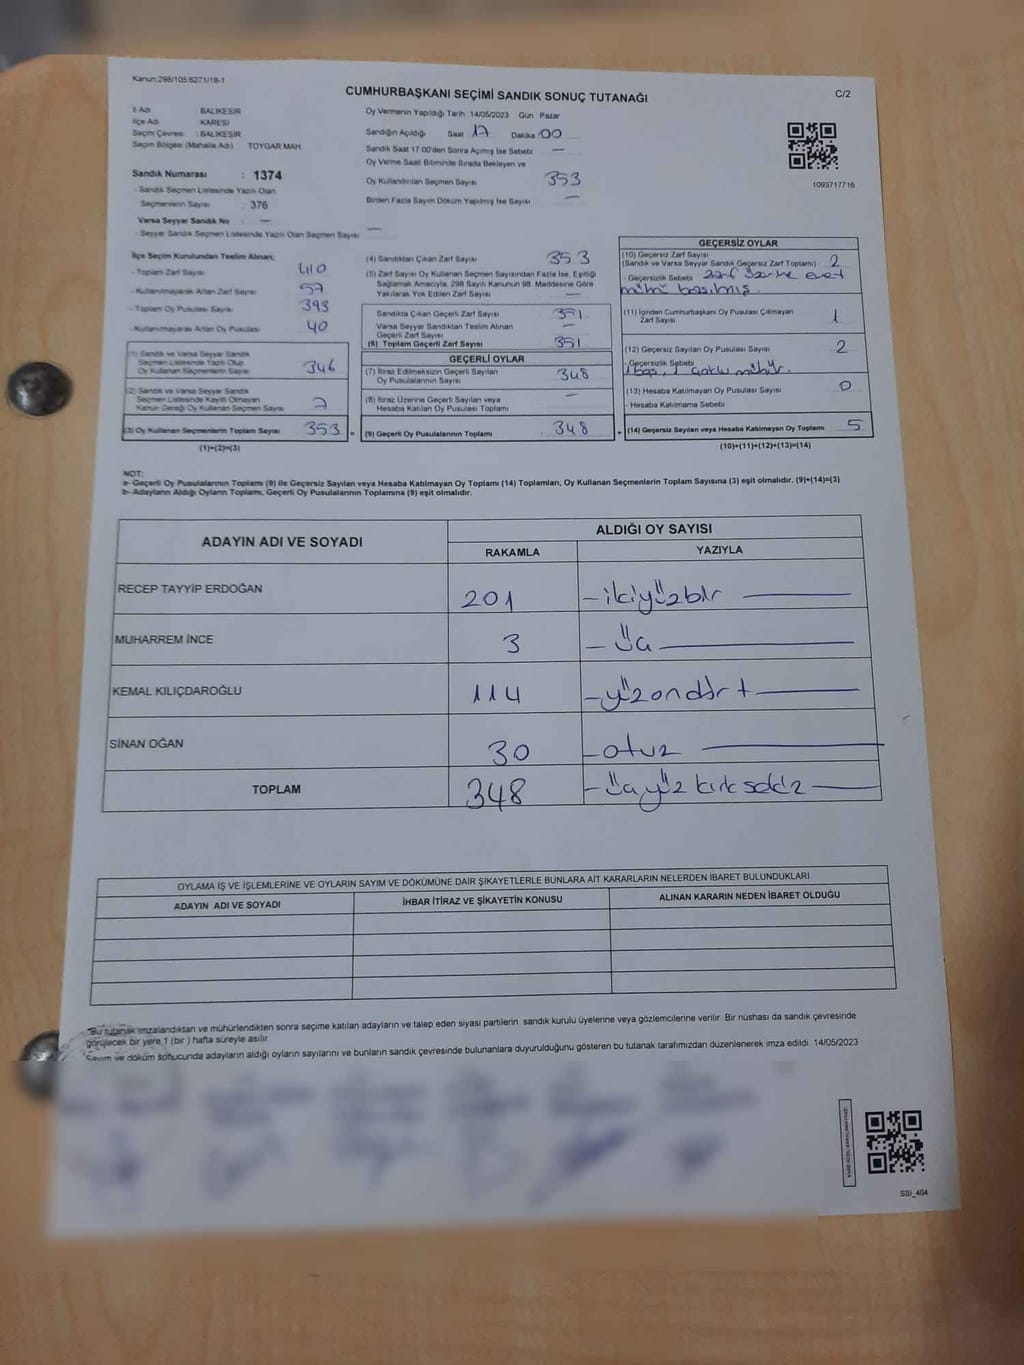 Kanun:298/105,6271/18-1
CUMHURBAŞKANI SEÇİMİ SANDIK SONUÇ TUTANAĞI
C/2
İl Adı BALIKESİR
İlçe Adı KARESİ
Seçim Çevresi : BALIKESİR
Seçim Bölgesi (Mahalle Adı) TOYGAR MAH
Sandık Numarası : 1374
- Sandık Seçmen Listesinde Yazılı Olan
Seçmenlerin Sayısı : 376
Varsa Seyyar Sandık No : —
- Seyyar Sandık Seçmen Listesinde Yazılı Olan Seçmen Sayısı —
Oy Vermenin Yapıldığı Tarih 14/05/2023 Gün Pazar
Sandığın Açıldığı Saat 17 Dakika 00
Sandık Saat 17.00'den Sonra Açılmış İse Sebebi —
Oy Verme Saati Bitiminde Sırada Bekleyen ve
Oy Kullandırılan Seçmen Sayısı 353
Birden Fazla Sayım Döküm Yapılmış İse Sayısı —
1093717716
İlçe Seçim Kurulundan Teslim Alınan;
- Toplam Zarf Sayısı 410
- Kullanılmayarak Artan Zarf Sayısı 57
- Toplam Oy Pusulası Sayısı 393
- Kullanılmayarak Artan Oy Pusulası 40
(1) Sandık ve Varsa Seyyar Sandık
Seçmen Listesinde Yazılı Olup
Oy Kullanan Seçmenlerin Sayısı 346
(2) Sandık ve Varsa Seyyar Sandık
Seçmen Listesinde Kayıtlı Olmayan
Kanun Gereği Oy Kullanan Seçmen Sayısı 7
(3) Oy Kullanan Seçmenlerin Toplam Sayısı 353 =
(1)+(2)=(3)
(4) Sandıktan Çıkan Zarf Sayısı 353
(5) Zarf Sayısı Oy Kullanan Seçmen Sayısından Fazla İse, Eşitliği
Sağlamak Amacıyla, 298 Sayılı Kanunun 98. Maddesine Göre
Yakılarak Yok Edilen Zarf Sayısı —
Sandıkta Çıkan Geçerli Zarf Sayısı 351
Varsa Seyyar Sandıktan Teslim Alınan
Geçerli Zarf Sayısı —
(6) Toplam Geçerli Zarf Sayısı 351
GEÇERLİ OYLAR
(7) İtiraz Edilmeksizin Geçerli Sayılan
Oy Pusulalarının Sayısı 348
(8) İtiraz Üzerine Geçerli Sayılan veya
Hesaba Katılan Oy Pusulası Toplamı —
(9) Geçerli Oy Pusulalarının Toplamı 348 +
GEÇERSİZ OYLAR
(10) Geçersiz Zarf Sayısı
(Sandık ve Varsa Seyyar Sandık Geçersiz Zarf Toplamı) 2
- Geçersizlik Sebebi zarf üzerine evet
mührü basılmış.
(11) İçinden Cumhurbaşkanı Oy Pusulası Çıkmayan
Zarf Sayısı 1
(12) Geçersiz Sayılan Oy Pusulası Sayısı 2
- Geçersizlik Sebebi
1 boş, 1 çoklu mühür.
(13) Hesaba Katılmayan Oy Pusulası Sayısı 0
- Hesaba Katılmama Sebebi
(14) Geçersiz Sayılan veya Hesaba Katılmayan Oy Toplamı 5
(10)+(11)+(12)+(13)=(14)
NOT:
a- Geçerli Oy Pusulalarının Toplamı (9) ile Geçersiz Sayılan veya Hesaba Katılmayan Oy Toplamı (14) Toplamları, Oy Kullanan Seçmenlerin Toplam Sayısına (3) eşit olmalıdır. (9)+(14)=(3)
b- Adayların Aldığı Oyların Toplamı, Geçerli Oy Pusulalarının Toplamına (9) eşit olmalıdır.
ADAYIN ADI VE SOYADI
ALDIĞI OY SAYISI
RAKAMLA YAZIYLA
RECEP TAYYİP ERDOĞAN 201 - ikiyüzbir
MUHARREM İNCE 3 - üç
KEMAL KILIÇDAROĞLU 114 - yüzondört
SİNAN OĞAN 30 - otuz
TOPLAM 348 - üçyüz kırk sekiz
OYLAMA İŞ VE İŞLEMLERİNE VE OYLARIN SAYIM VE DÖKÜMÜNE DAİR ŞİKAYETLERLE BUNLARA AİT KARARLARIN NELERDEN İBARET BULUNDUKLARI
ADAYIN ADI VE SOYADI İHBAR İTİRAZ VE ŞİKAYETİN KONUSU ALINAN KARARIN NEDEN İBARET OLDUĞU
Bu tutanak imzalandıktan ve mühürlendikten sonra seçime katılan adayların ve talep eden siyasi partilerin sandık kurulu üyelerine veya gözlemcilerine verilir. Bir nüshası da sandık çevresinde
görülecek bir yere 1 (bir ) hafta süreyle asılır.
Sayım ve döküm sonucunda adayların aldığı oyların sayılarını ve bunların sandık çevresinde bulunanlara duyurulduğunu gösteren bu tutanak tarafımızdan düzenlenerek imza edildi. 14/05/2023
SSI_404